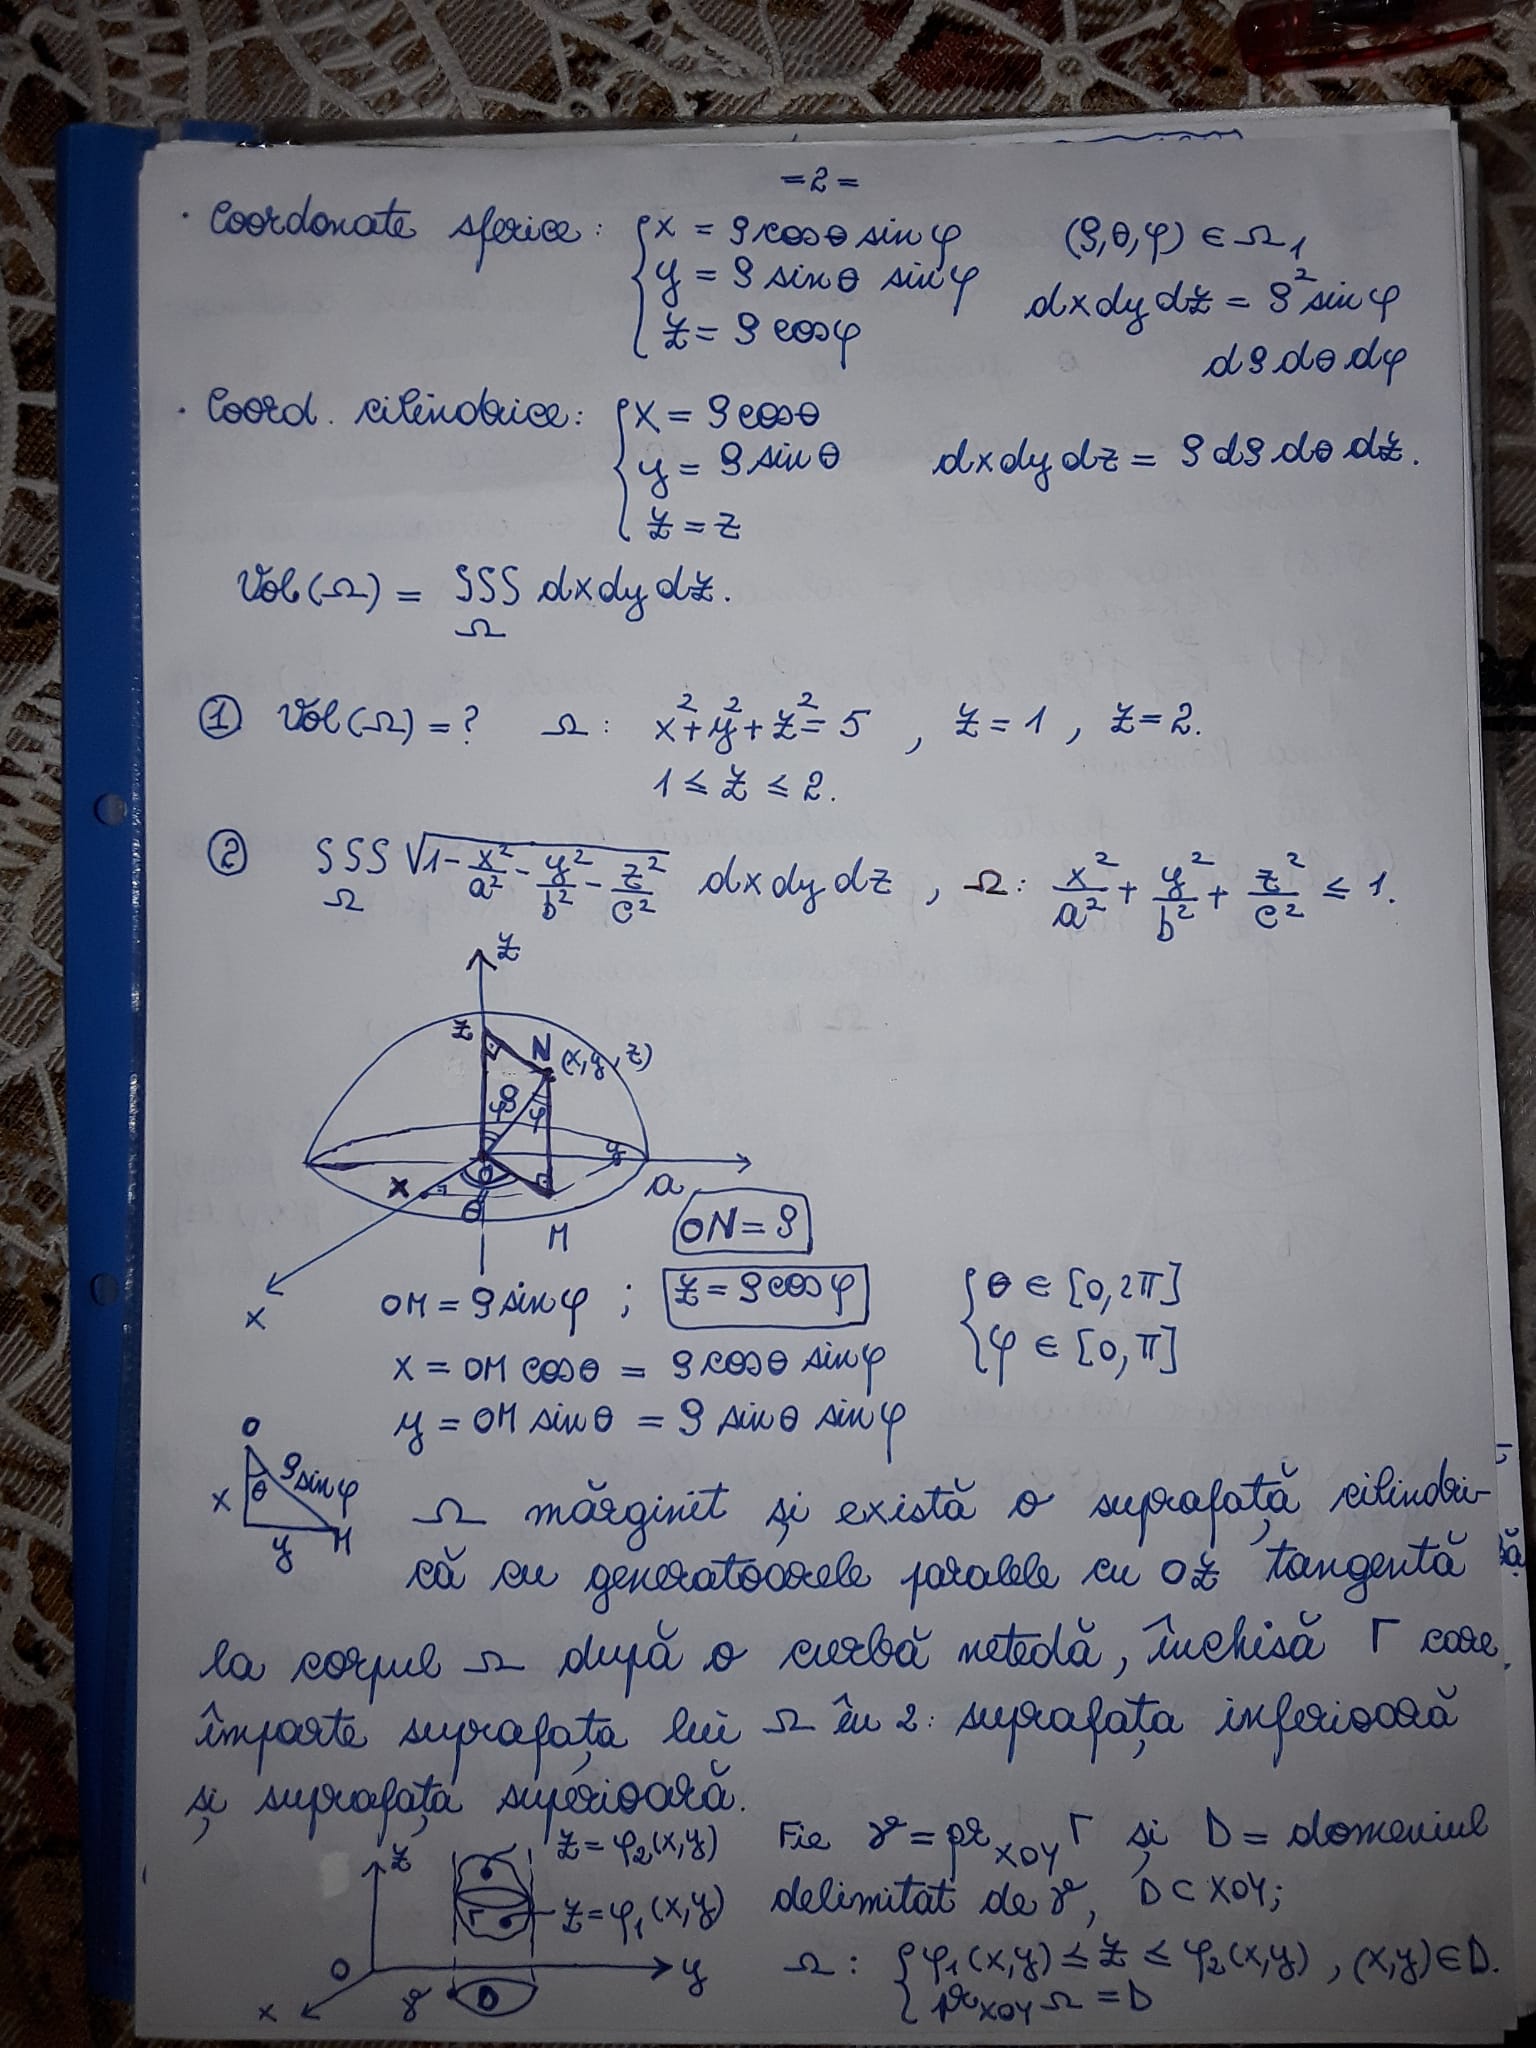 =2=
• Coordonate sferice: { x = ρ cosθ sinφ    (ρ,θ,φ) ∈ Ω₁
y = ρ sinθ sinφ    dxdydz = ρ² sinφ
z = ρ cosφ    dρ dθ dφ
• Coord. cilindrice: { x = ρ cosθ
y = ρ sinθ    dxdydz = ρ dρ dθ dz.
z = z
Vol(Ω) = ∫∫∫ dxdydz.
Ω
① Vol(Ω) = ?    Ω: x²+y²+z² = 5, z = 1, z = 2.
1 ≤ z ≤ 2.
② ∫∫∫ √(1 - x²/a² - y²/b² - z²/c²) dxdydz, Ω: x²/a² + y²/b² + z²/c² ≤ 1.
Ω
z
z N (x,y,z)
φ ρ φ
O y
x θ a
M
x
ON = ρ
OM = ρ sinφ ; z = ρ cosφ    { θ ∈ [0,2π]
x = OM cosθ = ρ cosθ sinφ    φ ∈ [0,π]
y = OM sinθ = ρ sinθ sinφ
O
θ ρ sinφ
x
y M
Ω mărginit și există o suprafață cilindri-
că cu generatoarele paralele cu OZ tangentă
la corpul Ω după o curbă netedă, închisă Γ care
împarte suprafața lui Ω în 2: suprafața inferioară
și suprafața superioară.
z z = φ₂(x,y)    Fie γ = pr_XOY Γ și D = domeniul
Γ z = φ₁(x,y)    delimitat de γ, D ⊂ XOY;
O y    Ω: { φ₁(x,y) ≤ z ≤ φ₂(x,y), (x,y) ∈ D.
x γ D    pr_XOY Ω = D